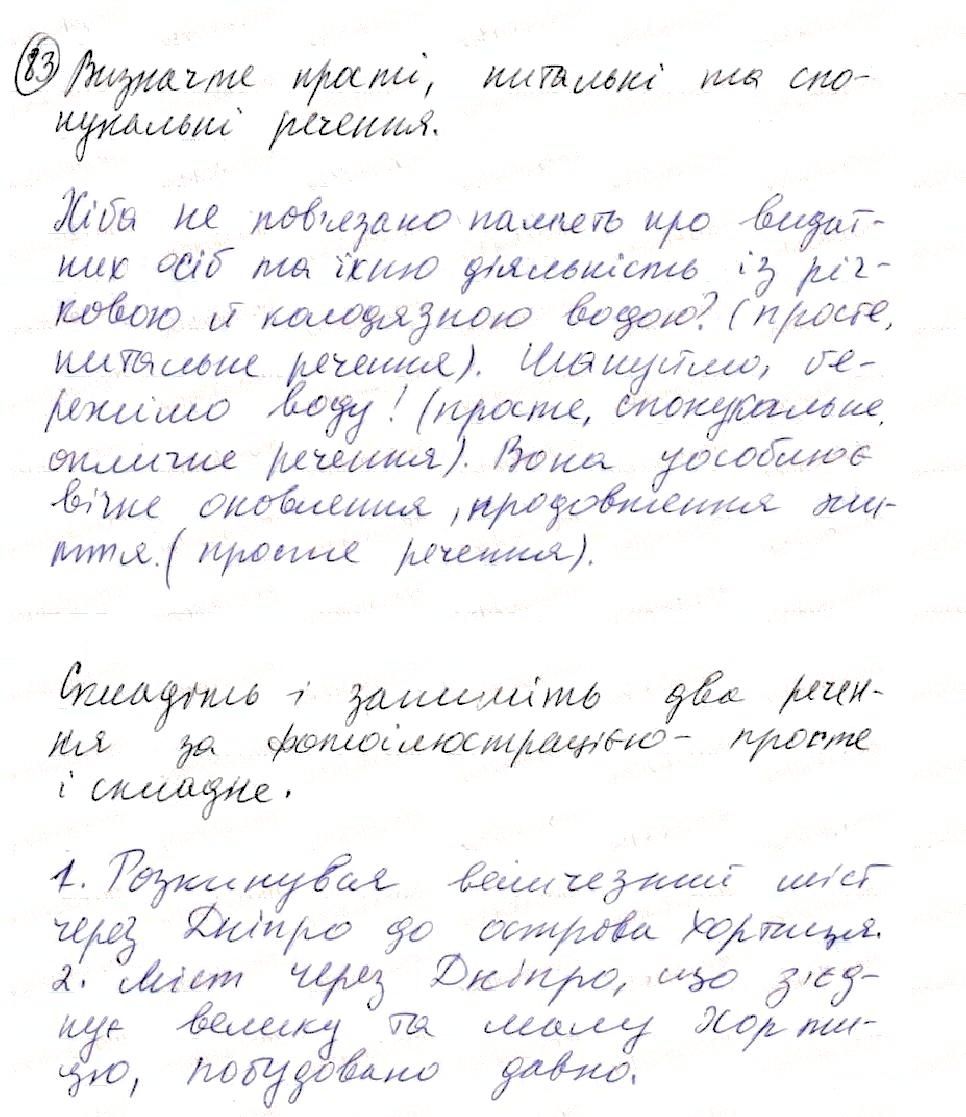 83 Визначте прості, питальні та спо-
нукальні речення.
Хіба не пов'язано пам'ять про видат-
них осіб та їхню діяльність із річ-
ковою й колодязною водою? (просте,
питальне речення). Шануймо, бе-
режімо воду! (просте, спонукальне,
окличне речення). Вона уособлює
вічне оновлення, продовження жи-
ття. (просте речення).
Складіть і запишіть два речен-
ня за фотоілюстрацією - просте
і складне.
1. Розкинувся величезний міст
через Дніпро до острова Хортиця.
2. Міст через Дніпро, що з'єд-
нує велику та малу Хорти-
цю, побудовано давно.